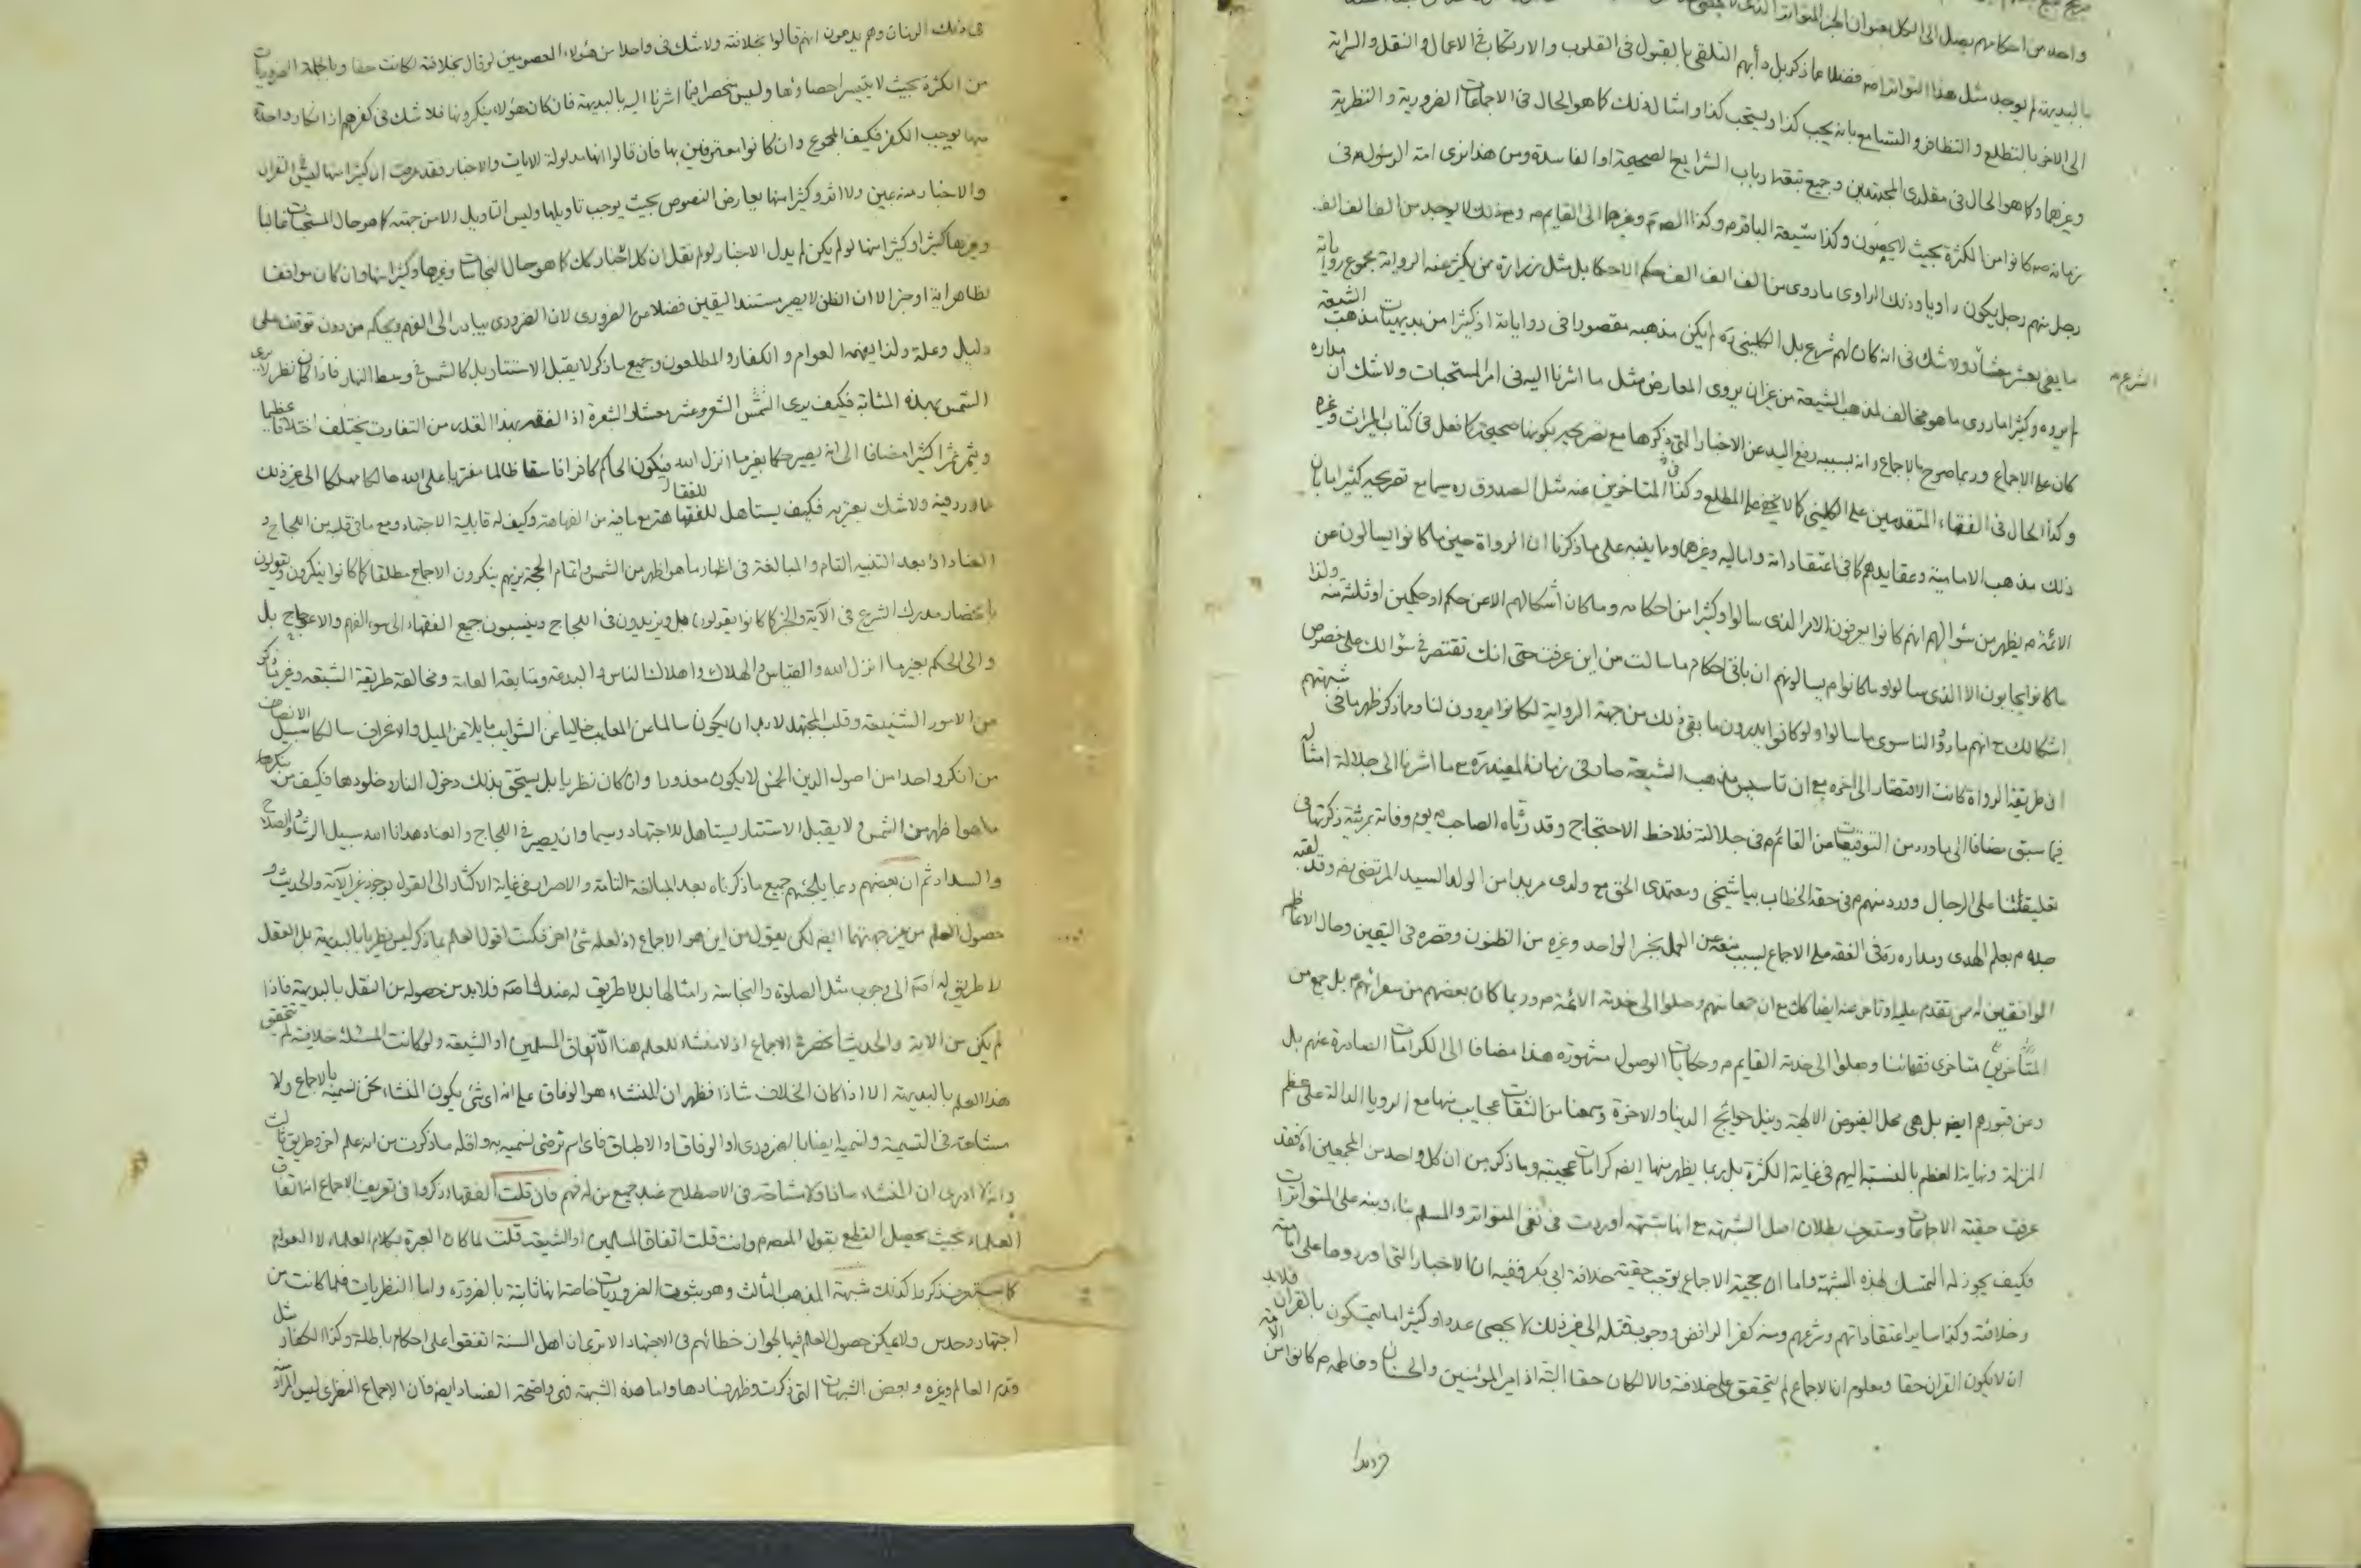 واحد من احكامهم يصل الى الكل بعنوان الخبر المتواتر الذى
بالبديهة لم يوجد مثل هذا التواتر اصه فضلا عما ذكر بل دأبهم التلقى بالقبول فى القلوب والارتكاب فى الاعمال والنقل والسراية
الى الاخر بالتطلع والتظافر والتسامع بانه يجب كذا ويستحب كذا وامثال ذلك كما هو الحال فى الاجماعات الضرورية والنظرية
وغيرها وكما هو الحال فى مقلدى المجتهدين وجميع تبعة ارباب الشرايع الصحيحة او الفاسدة ومن هذا نرى امة الرسول ص فى
زمانه ص كانوا من الكثرة بحيث لا يحصون وكذا شيعة الباقر ع وكذا الصادق ع وغيرهما الى القايم ع ومع ذلك لا يوجد من الف الف الف
رجل منهم رجل يكون راويا وذلك الراوى ما روى من الف الف الف حكم الاحكما بل مثل زرارة ممن يكثر عنه الرواية مجموع رواياته
ما يفى بعشر معشار ولا شك فى انه كان لهم شرع بل الكلينى ره لم يكن مذهبه مقصورا فى رواياته اذ كثيرا من بديهيات مذهب الشيعة
الشرع منه
لم يروه وكثيرا ما روى ما هو مخالف لمذهب الشيعة من غير ان يروى المعارض مثل ما اشرنا اليه فى امر المستحبات ولا شك ان مداره
كان على الاجماع وربما صرح بالاجماع وانه بسببه رفع اليد عن الاخبار التى ذكرها مع تصريحه بكونها صحيحة كما فعل فى كتاب الميراث وغيره
وكذا الحال فى الفقهاء المتقدمين على الكلينى كما لا يخفى على المطلع وكذا المتاخرين عنه مثل الصدوق ره سيما مع تصريحه كثيرا ما بان
ذلك مذهب الامامية وعقايدهم كما فى اعتقاداته واماليه وغيرهما وما ينبه على ما ذكرنا ان الرواة حين ما كانوا يسالون عن
الائمة ع يظهر من سؤالهم انهم كانوا يعرفون الامر الذى سالوا وكثيرا من احكامه وما كان اشكالهم الا عن حكم او حكمين او ثلثة منه ولذا
ما كانوا يجابون الا الذى سالوا وما كانوا ع يسالونهم ان باقى احكام ما سالت من اين عرفت حتى انك تقتصر فى سؤالك على خصوص
اشكالك مع انهم ما ردوا لنا سوى ما سالوا ولو كانوا يدرون ما بقى ذلك من جهة الرواية لكانوا يروون لنا وما ذكر ظهر ما فى شبهتهم
ان طريقة الرواة كانت الاقتصار الى اخره مع ان تاسيس مذهب الشيعة صار فى زمان المفيد ره مع ما اشرنا الى جلالة امثاله
فيما سبق مضافا الى ما ورد من التوقيعات من القائم ع فى جلالته فلاحظ الاحتجاج وقد رثاه الصاحب ع يوم وفاته بمرثية ذكرتها فى
تعليقتنا على الرجال وورد منهم ع فى حقه الخطاب بيا شيخى ومعتمدى الحق مع ولدى مريدا من الولد السيد المرتضى رض وقد لقبه
جده ع بعلم الهدى ومداره ره فى الفقه على الاجماع بسبب منعه عن العمل بخبر الواحد وغيره من الظنون وقصره فى اليقين وحال الاعاظم
الوافقين له ممن تقدم عليه او تاخر عنه ايضا كك مع ان جماعة منهم وصلوا الى خدمة الائمة ع وربما كان بعضهم من سفرائهم ع بل جمع من
المتأخرين متاخرى فقهائنا وصلوا الى خدمة القايم ع وحكايات الوصول مشهورة هذا مضافا الى الكرامات الصادرة عنهم بل
وعن قبورهم ايضا بل هى محل الفيوض الالهية ونيل حوائج الدنيا والاخرة وسمعنا من الثقات عجايب منها مع الرويا الدالة على عظم
المنزلة ونهاية العظم بالنسبة اليهم فى غاية الكثرة بل ربما يظهر منها ايضا كرامات عجيبة وما ذكر من ان كل واحد من المجمعين اه فقد
عرفت حقية الاجماعات وستعرف بطلان اصل الشبهة مع انها شبهة اوردت فى نفى المتواتر والمسلم بناء دينه على المتواترات
فكيف يجوز له التمسك لهذه الشبهة واما ان حجية الاجماع يوجب حقية خلافة ابى بكر ففيه ان الاخبار التى اوردوها على امامته
وخلافته وكذا ساير اعتقاداتهم وشرعهم ومنه كفر الرافض ووجوب قتله الى غير ذلك لا يحصى عددا وكثيرا ما يتمسكون بالقران فلابد
ان لا يكون القران حقا ومعلوم ان الاجماع لم يتحقق على خلافته والا لكان حقا البتة اذ امير المؤمنين والحسنان وفاطمة ع كانوا من الامة
فى ذلك الزمان وهم يدعون انهم قالوا بخلافته ولا شك فى واحدا من هؤلاء المعصومين لو قال بخلافته لكانت حقا وبالجملة الضروريات
من الكثرة بحيث لا يتيسر احصاؤها وليس منحصرا فيما اشرنا اليه بالبديهة فان كان هؤلاء ينكرونها فلا شك فى كفرهم اذ انكار واحدة
منها يوجب الكفر فكيف المجموع وان كانوا معترفين بها فان قالوا انها مدلولة الايات والاخبار فقد عرفت ان كثيرا منها ليس فى القران
والاخبار منه عين ولا اثر وكثيرا منها يعارض النصوص بحيث يوجب تاويلها وليس التاويل الا من جهته كما هو حال المستحبات غالبا
وغيرها كثيرا وكثيرا منها لو لم يكن لم يدل الاخبار لو لم نقل ان كل اخبار كك كما هو حال النجاسات وغيرها وكثيرا منها وان كان موافقا
لظاهر اية او خبر الا ان الظن لا يصير مستند اليقين فضلا من الضرورى لان الضرورى يبادر الى الفهم ويحكم من دون توقف على
دليل وعلة ولذا يفهمه العوام والكفار والمطلعون وجميع ما ذكر لا يقبل الاستتار بل كالشمس فى وسط النهار فاذا كان نظر لا يرى
الشمس بهذه المثابة فكيف يرى الشمس الشعر وعشر معشار الشعرة اذ الفقه بهذا القدر من التفاوت يختلف اختلافا عظيما
ويثمر ثمرا كثيرا مضافا الى انه يصير حكما بغير ما انزل الله فيكون الحاكم كافرا فاسقا ظالما مفتريا على الله هالكا مهلكا الى غير ذلك
مما ورد فيه ولا شك يعتريه فكيف يستاهل للفقاهة مع ما فيه من الفهاهة وكيف له قابلية الاجتهاد ومع ما فى قلبه من اللجاج و
العناد اذ بعد التنبيه التام والمبالغة فى اظهار ما هو اظهر من الشمس واتمام الحجة نريهم ينكرون الاجماع مطلقا كما كانوا ينكرون ويقولون
بانحصار مدرك الشرع فى الآية والخبر كما كانوا يقولون قبل ويزيدون فى اللجاج وينسبون جميع الفقهاء الى سوء الفهم والاعوجاج بل
والى الحكم بغير ما انزل الله والقياس والهلاك واهلاك الناس والبدعة ومتابعة العامة ومخالفة طريقة الشيعة وغير ذلك
من الامور الشنيعة وقلب المجتهد لابد ان يكون سالما من المعايب خاليا عن الشوايب مايلا عن الميل والانحراف سالكا سبيل الانصاف
من انكر واحدا من اصول الدين الخمس لا يكون معذورا وان كان نظريا بل يستحق بذلك دخول النار وخلودها فكيف من ينكر
ما هو اظهر من الشمس ولا يقبل الاستتار يستاهل للاجتهاد وسيما وان يصير فى اللجاج والعناد هدانا الله سبيل الرشاد والصلاح
والسداد ثم ان بعضهم ربما يلجئهم جميع ما ذكرناه بعد المبالغة التامة والاصرار فى غاية الاكثار الى القول بوجود غير الآية والحديث و
حصول العلم من غير جهتهما ايضا لكن يقول من اين هو الاجماع اذ لعله شئ اخر فكنت اقول العلم بما ذكر ليس نظريا بالبديهة بل العقل
لا طريق له اصه الى وجوب مثل الصلوة والنجاسة وامثالها بل لا طريق له عندك اصه فلابد من حصوله من النقل بالبديهة فاذا
لم يكن من الآية والحديث انحصر فى الاجماع اذ لا منشاء للعلم هنا الا اتفاق المسلمين او الشيعة ولو كانت المسئلة خلافية لم يتحقق
هذا العلم بالبديهة الا اذا كان الخلاف شاذا فظهر ان المنشاء هو الوفاق على انه اى شئ يكون المنشاء نحن نسميه بالاجماع ولا
مشاحة فى التسمية ولنسميه ايضا بالضرورى او الوفاق او الاطباق فاى اسم ترضى نسميه به واقله ما ذكرت من انه علم اخر وطريق ثالث
وانه لا ادرى ان المنشاء ماذا ولا مشاحة فى الاصطلاح عند جميع من له فهم فان قلت الفقهاء ذكروا فى تعريف الاجماع انه اتفاق
العلماء بحيث يحصل القطع بقول المعصوم وانت قلت اتفاق المسلمين او الشيعة قلت لما كان العبرة بكلام العلماء لا العوام
كما ستعرف ذكروا كذلك شبهة المذهب الثالث وهو بثبوت الضروريات خاصة انها ثابتة بالضرورة واما النظريات فلما كانت من
اجتهاد وحدس ولا يمكن حصول العلم فيها لجواز خطائهم فى الاجتهاد الا ترى ان اهل السنة اتفقوا على احكام باطلة وكذا الكفار مثل
وقدم العالم وغيره وبعض الشبهات التى ذكرت وظهر فسادها واما هذه الشبهة فهى واضحة الفساد ايضا فان الاجماع النظرى ليس المراد